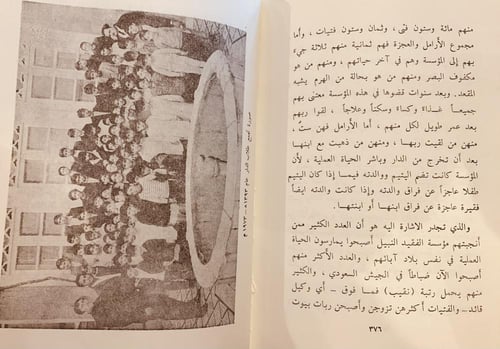 منهم مائة وستون فتى ، وثمان وستون فتيات ، وأما
مجموع الأرامل والعجزة فهم ثمانية منهم ثلاثة جيء
بهم إلى المؤسسة وهم في آخر حياتهم ، ومنهم من هو
مكفوف البصر ومنهم من هو بحالة من الهرم يشبه
المقعد. وبعد سنوات قضوها في هذه المؤسسة معنى بهم
جميعاً غذاءً وكساء وسكناً وعلاجاً ، لقوا ربهم
بعد عمر طويل لكل منهم ، أما الأرامل فهن ست ،
منهن من لقيت ربها ، ومنهن من ذهبت مع ابنها
بعد أن تخرج من الدار وباشر الحياة العملية ، لأن
المؤسسة كانت تضم اليتيم ووالدته فيما إذا كان اليتيم
طفلا عاجزاً عن فراق والدته وإذا كانت والدته ايضاً
فقيرة عاجزة عن فراق ابنها أو ابنتها.
والذي تجدر الاشارة اليه هو أن العدد الكثير ممن
أنجبتهم مؤسسة الفقيد النبيل أصبحوا يمارسون الحياة
العملية في نفس بلاد آبائهم ، والعدد الأكثر منهم
أصبحوا الآن ضباطاً في الجيش السعودي ، والكثير
منهم يحمل رتبة (نقيب) فما فوق – أي وكيل
قائد – والفتيات أكثرهن تزوجن وأصبحن ربات بيوت
٣٧٦
صورة تجمع طلاب الدار عام ١٣٩٣ه – ١٩٧٣ م